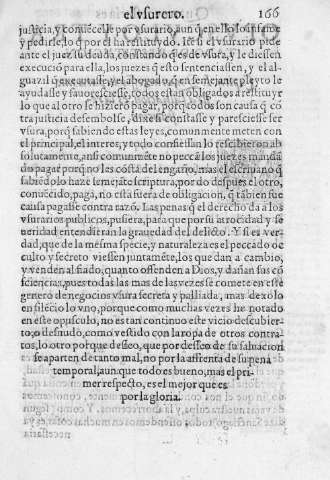 el vsurero. 166
justicia, y conuécelle por vsurario, aun q̃ en ello lo
y pedirle, lo q̃ por el ha restituydo. Ité si el vsurario pide
ante el juez su deuda, constando q̃ es de vsura, y le diessen
execució para ella, los juezes que sétenciassen, y el al-
guazil q̃ executasse, y el abogado, q̃ en semejante pleyto le
ayudasse y fauoresciesse, todos estan obligados a restituyr
lo que al otro se hizieró pagar, porq̃ todos son causa q̃ có
tra justicia desembolse, dixe si constasse y paresciesse ser
vsura, porq̃ sabiendo estas leyes, comunmente meten con
el principal, el interes, y todo confiessan lo rescibieron ab
solutamente, ansi comunméte no peccá los juezes mandá
do pagar porq̃ no les costa del engaño, mas el escriuano q̃
sabiédo lo haze semejáte scriptura, por do despues el otro,
conuécido, paga, no esta fuera de obligacion, q̃ tábien fue
causa pagasse contra razó. Las penas q̃ el derecho da a los
vsurarios publicos, pusiera, para que por su atrocidad y se
ueridad entendieran la grauedad del delicto. Y si es ver-
dad, que de la mesma specie, y naturaleza es el peccado oc
culto y secreto viessen juntaméte, los que dan a cambio,
y venden al fiado, quanto offenden a Dios, y dañan sus có
sciencias, pues todas las mas de las vezes se comete en este
genero de negocios vsura secreta y palliada, mas dexolo
en silécio lo vno, porque como muchas vezes he notado
en este opusculo, no es tan continuo este vicio descubier-
to, o desnudo, como vestido con la ropa de otros contra-
tos, lo otro porque desseo, que por desseo de su saluacion
se aparten de tanto mal, no por la affrenta de su pena
temporal, aun que todo es bueno, mas el pri-
mer respecto, es el mejor que es
por la gloria.